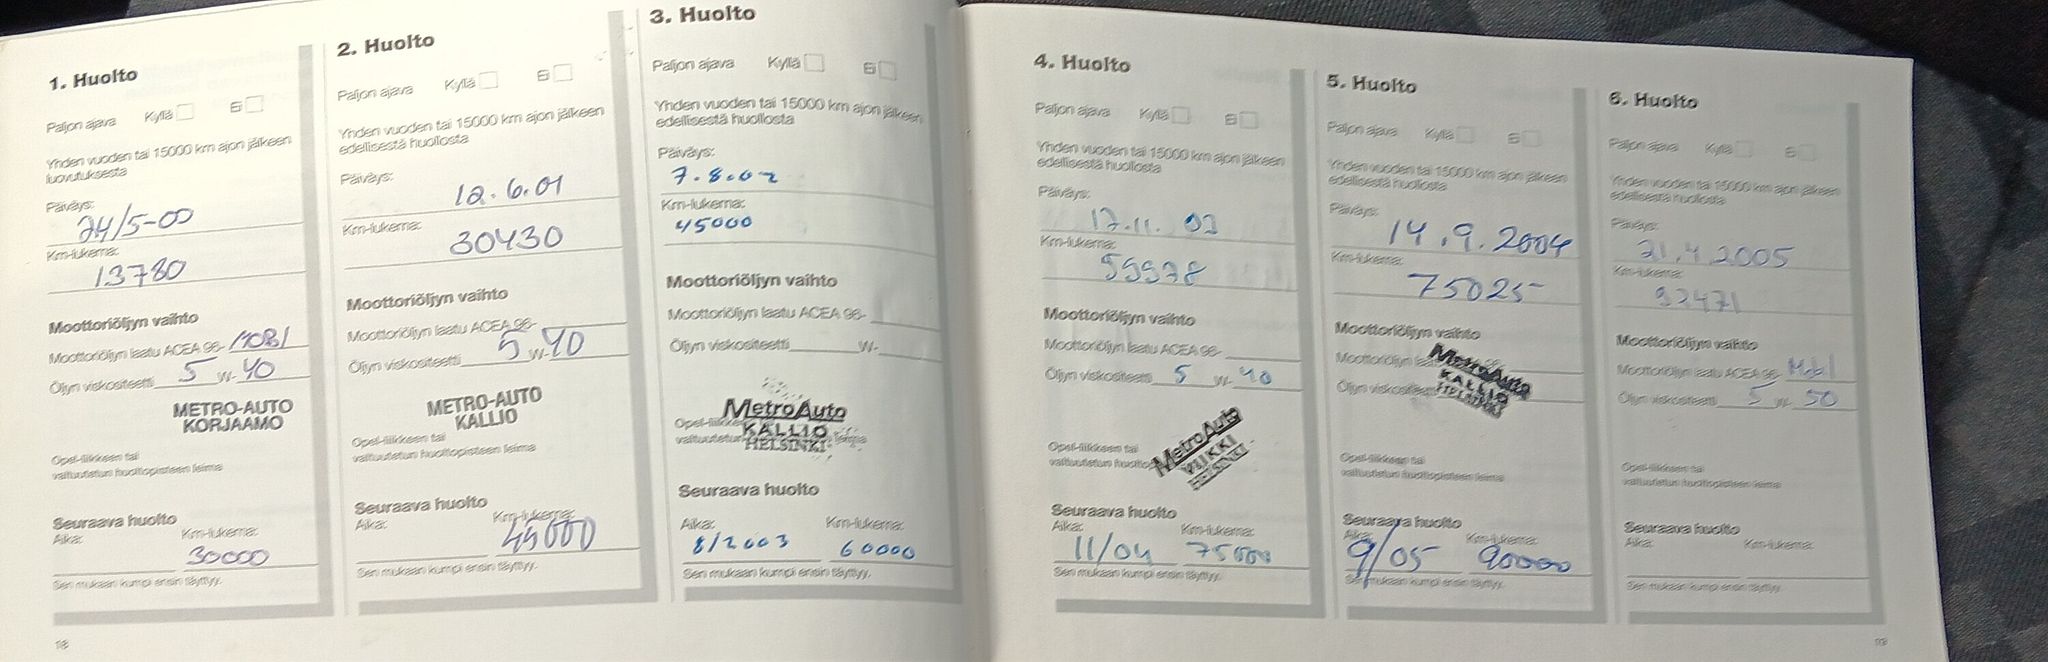 1. Huolto
Paljon ajava Kyllä Ei
Yhden vuoden tai 15000 km ajon jälkeen
luovutuksesta
Päiväys:
24/5-00
Km-lukema:
13780
Moottoriöljyn vaihto
Moottoriöljyn laatu ACEA 96- MOBI
Öljyn viskositeetti 5 W- 40
METRO-AUTO
KORJAAMO
Opel-liikkeen tai
valtuutetun huoltopisteen leima
Seuraava huolto
Aika: Km-lukema:
30000
Sen mukaan kumpi ensin täyttyy.
18
2. Huolto
Paljon ajava Kyllä Ei
Yhden vuoden tai 15000 km ajon jälkeen
edellisestä huollosta
Päiväys:
12.6.01
Km-lukema:
30430
Moottoriöljyn vaihto
Moottoriöljyn laatu ACEA 96-
Öljyn viskositeetti 5 W- 40
METRO-AUTO
KALLIO
Opel-liikkeen tai
valtuutetun huoltopisteen leima
Seuraava huolto
Aika: Km-lukema:
45000
Sen mukaan kumpi ensin täyttyy.
3. Huolto
Paljon ajava Kyllä Ei
Yhden vuoden tai 15000 km ajon jälkeen
edellisestä huollosta
Päiväys:
7.8.02
Km-lukema:
45000
Moottoriöljyn vaihto
Moottoriöljyn laatu ACEA 96-
Öljyn viskositeetti W-
MetroAuto
KALLIO
HELSINKI
Opel-liikkeen
valtuutetun leima
Seuraava huolto
Aika: Km-lukema:
8/2003 60000
Sen mukaan kumpi ensin täyttyy.
4. Huolto
Paljon ajava Kyllä Ei
Yhden vuoden tai 15000 km ajon jälkeen
edellisestä huollosta
Päiväys:
17.11.03
Km-lukema:
59978
Moottoriöljyn vaihto
Moottoriöljyn laatu ACEA 96-
Öljyn viskositeetti 5 W- 40
MetroAuto
VIIKKI
HELSINKI
Opel-liikkeen tai
valtuutetun
Seuraava huolto
Aika: Km-lukema:
11/04 75000
Sen mukaan kumpi ensin täyttyy.
5. Huolto
Paljon ajava Kyllä Ei
Yhden vuoden tai 15000 km ajon jälkeen
edellisestä huollosta
Päiväys:
14.9.2004
Km-lukema:
75025
Moottoriöljyn vaihto
Moottoriöljyn
Öljyn
MetroAuto
KALLIO
HELSINKI
Opel-liikkeen tai
valtuutetun huoltopisteen leima
Seuraava huolto
Aika: Km-lukema:
9/05 90000
Sen mukaan kumpi ensin täyttyy.
6. Huolto
Paljon ajava Kyllä Ei
Yhden vuoden tai 15000 km ajon jälkeen
edellisestä huollosta
Päiväys:
21.4.2005
Km-lukema:
92471
Moottoriöljyn vaihto
Moottoriöljyn laatu ACEA 96- Mobil
Öljyn viskositeetti 5 W- 50
Opel-liikkeen tai
valtuutetun huoltopisteen leima
Seuraava huolto
Aika: Km-lukema:
Sen mukaan kumpi ensin täyttyy.